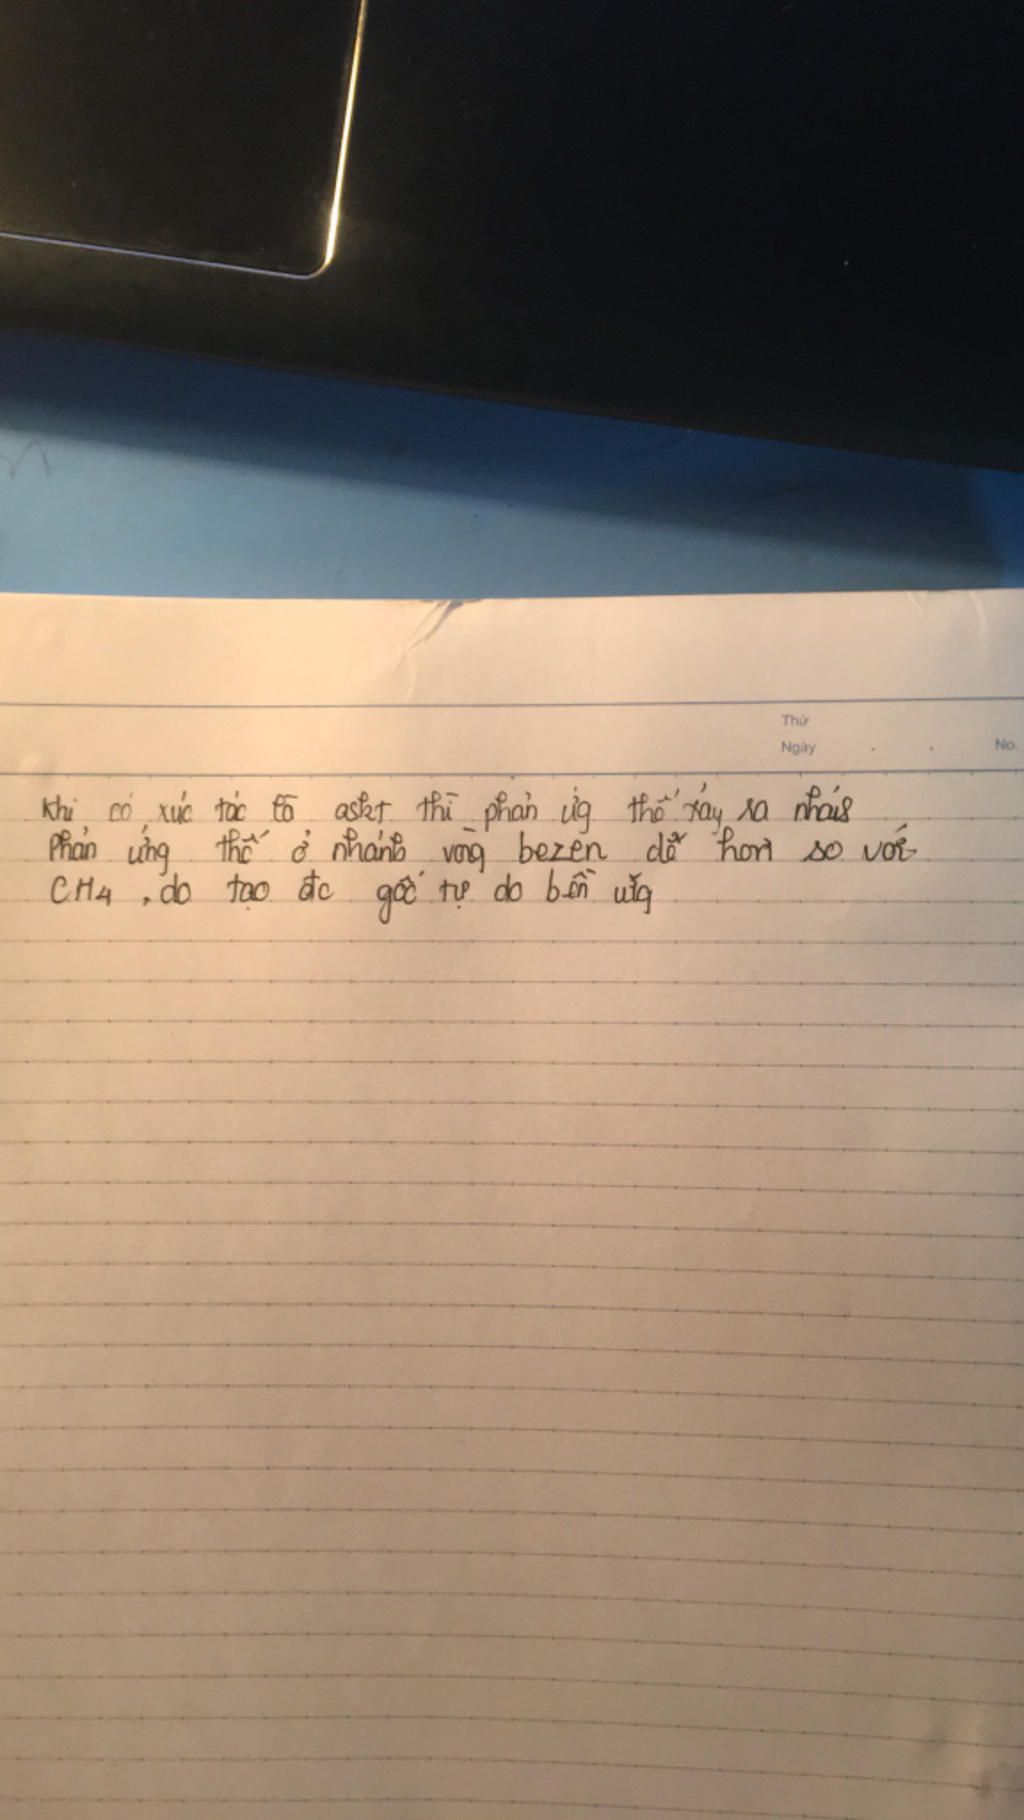 Thứ
Ngày . . No.
Khi có xúc tác là askt thì phản ứg thế xảy ra nhánh
Phản ứng thế ở nhánh vòng bezen dễ hơn so với
CH4, do tạo đc gốc tự do bền vữg